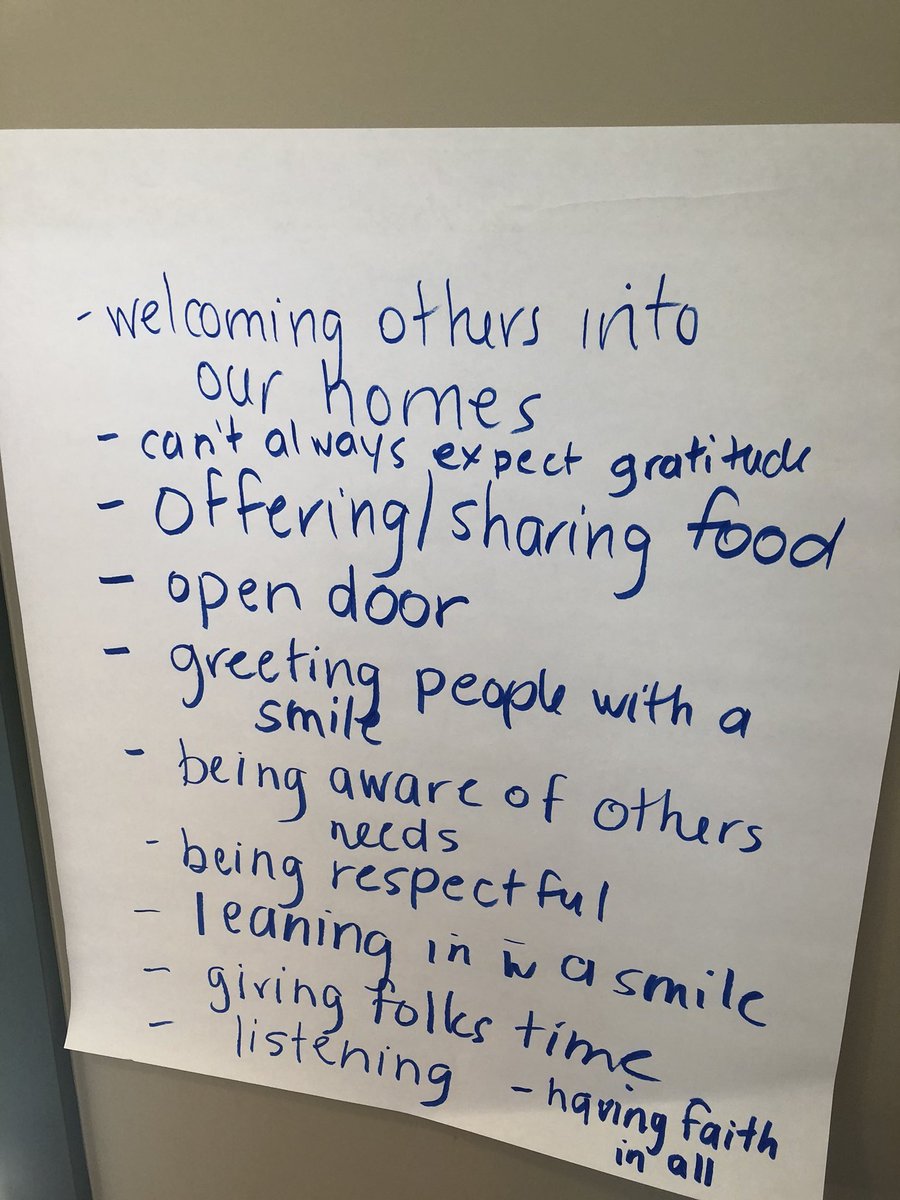 - welcoming others into
our homes
- can't always expect gratitude
- offering/sharing food
- open door
- greeting people with a
smile
- being aware of others
needs
- being respectful
- leaning in w̄ a smile
- giving folks time
- listening
- having faith
in all